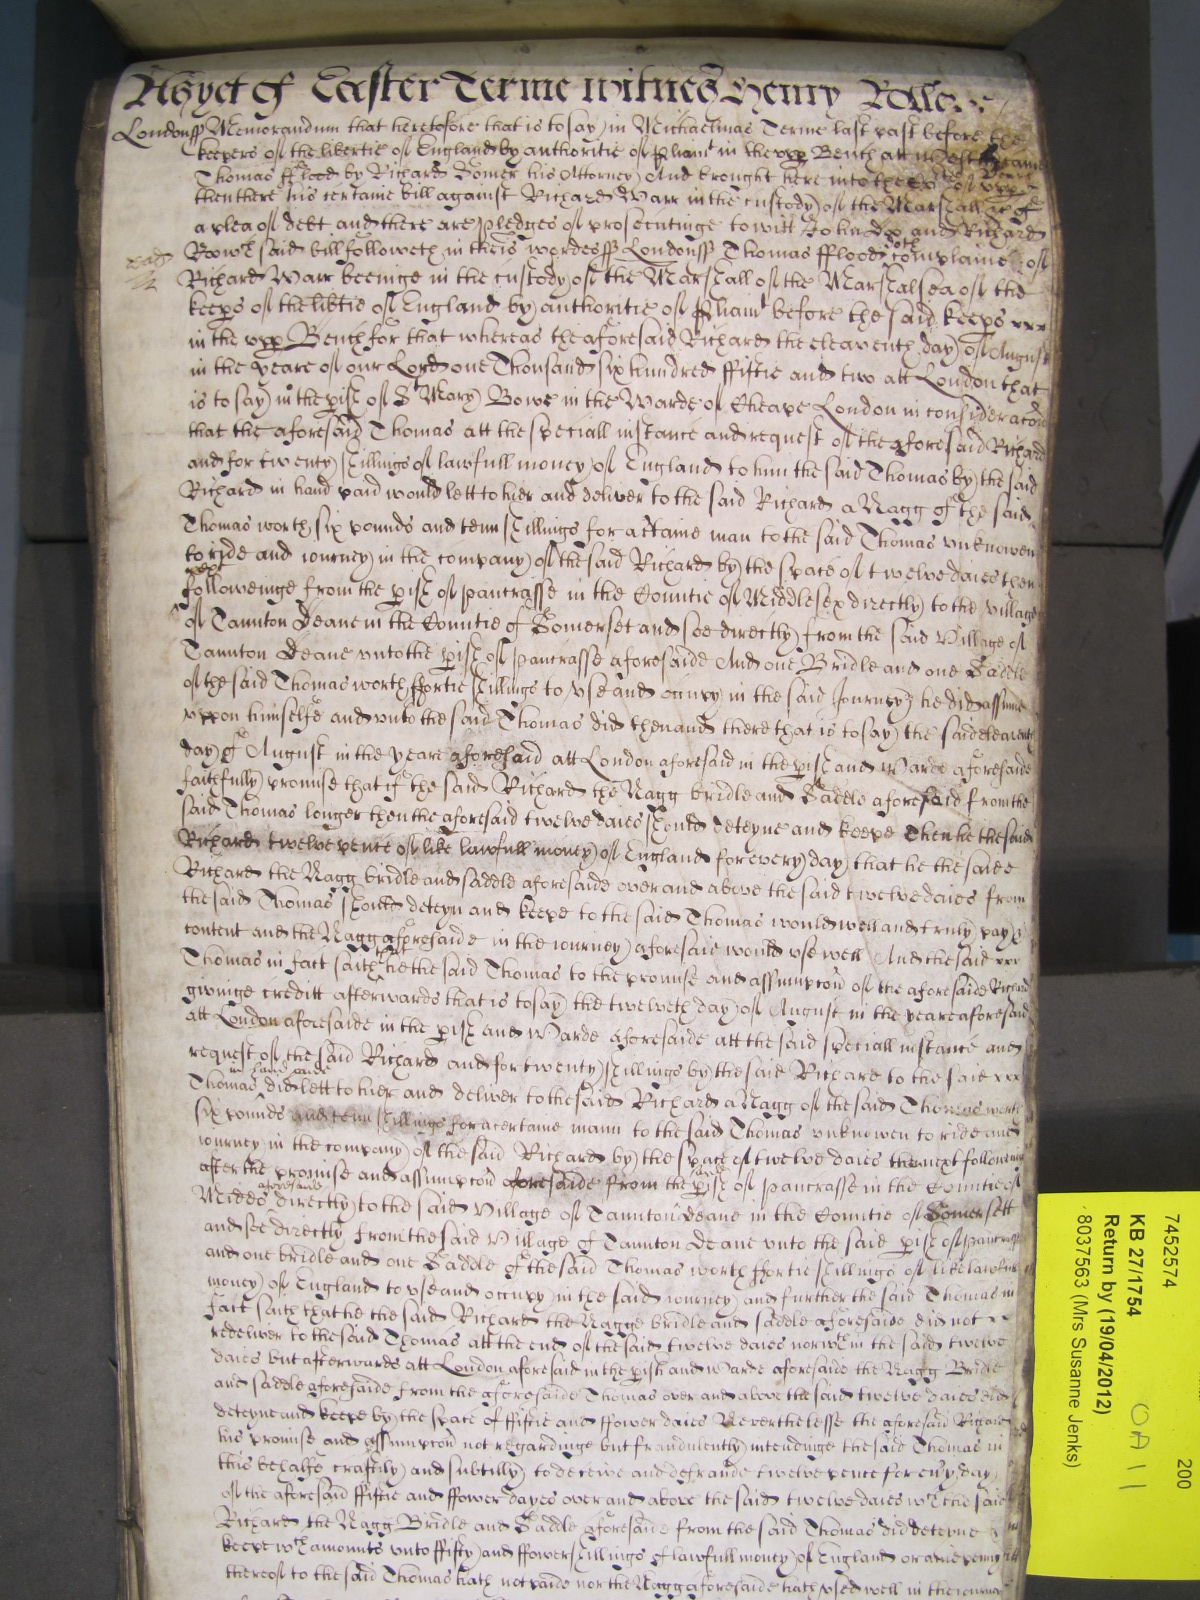 As yet of Easter Terme witnes Henry Rolle
London ss Memorandum that heretofore that is to say in Michaelmas Terme last past before the
keepers of the libertie of England by authoritie of pliamt in the upp Bench att came
Thomas fflood by Richard Somer his Attorney And brought here into the
then there his certaine bill against Richard Warr in the custody of the Marshall &c of
a plea of debt and there are pledges of prosecutinge to witt John Doo and Richard
Roo wch said bill followeth in theis wordes ss London ss Thomas fflood doth complaine of
Richard Warr beeinge in the custody of the Marshall of the Marshalsea of the
keeps of the libtie of England by authoritie of pliamt before the said keeps
in the upp Bench for that whereas the aforesaid Richard the eleaventh day of August
in the yeare of our Lord one Thousand six hundred ffiftie and two att London that
is to say in the pish of St Mary Bowe in the Warde of Cheape London in consideracon
that the aforesaid Thomas att the speciall instance and request of the aforesaid Richard
and for twenty shillings of lawfull money of England to him the said Thomas by the said
Richard in hand paid would lett to hier and deliver to the said Richard a Nagg of the said
Thomas worth six pounds and tenn shillings for a ctaine man to the said Thomas unknowen
to ride and iourney in the company of the said Richard by the space of twelve daies then
next
followeinge from the pish of pancrasse in the Countie of Middlesex directly to the village
of Taunton Deane in the Countie of Somerset and soe directly from the said Village of
Taunton Deane unto the pish of pancrasse aforesaide And one Bridle and one Saddle
of the said Thomas worth ffortie shillings to use and occupy in the said Journey he did assume
uppon himselfe and unto the said Thomas did then and there that is to say the said eleaventh
day of August in the yeare aforesaid att London aforesaid in the pish and Warde aforesaide
faithfully promise that if the said Richard the Nagg bridle and Saddle aforesaid from the
said Thomas longer then the aforesaid twelve daies should deteyne and keepe Then he the said
Richard twelve pence of like lawfull money of England for every day that he the saide
Richard the Nagg bridle and saddle aforesaide over and above the said twelve daies from
the said Thomas should deteyn and keepe to the said Thomas would well and truly pay &
content and the Nagg aforesaide in the iourney aforesaid would use well And the said
Thomas in fact saith that he the said Thomas to the promise and assumpcon of the aforesaide Richard
givinge creditt afterwards that is to say the twelveth day of August in the yeare aforesaid
att London aforesaide in the pish and Warde aforesaide att the said speciall instance and
request of the said Richard and for twenty shillings by the said Richard to the said
in hand paid
Thomas did lett to hier and deliver to the said Richard a Nagg of the said Thomas worth
six pounds and tenn shillings for a certaine mann to the said Thomas unknowen to ride and
iourney in the company of the said Richard by the space of twelve daies then next followeing
after the promise and assumpcon aforesaide from the said pish of pancrasse in the Countie of
Midds aforesaide directly to the said Village of Taunton Deane in the Countie of Somersett
and soe directly from the said Village of Taunton Deane unto the said pish of pancrasse
and one bridle and one Saddle of the said Thomas worth ffortie shillings of like lawfull
money of England to use and occupy in the said iourney and further the said Thomas in
fact saith that he the said Richard the Nagge bridle and saddle aforesaide did not
redeliver to the said Thomas att the end of the said twelve daies nor wthin the said twelve
daies but afterwards att London aforesaid in the pish and Warde aforesaide the Nagg Bridle
and saddle aforesaide from the aforesaide Thomas over and above the said twelve daies did
deteyne and keepe by the space of ffiftie and ffower daies Neverthelesse the aforesaid Richard
his promise and assumpcon not regardinge but fraudulently intendinge the said Thomas in
this behalfe craftily and subtilly to deceive and defraude twelve pence for evy day
of the aforesaid ffiftie and ffower dayes over and above the said twelve daies wch the said
Richard the Nagg Bridle and Saddle aforesaid from the said Thomas did deteyne
keepe wch amounts unto ffifty and ffower shillings of lawfull money of England or anie penny
thereof to the said Thomas hath not paide nor the Nagg aforesaide hath used well in the iourney
7452574
200
KB 27/1754
OA 11
Return by (19/04/2012)
8037563 (Mrs Susanne Jenks)